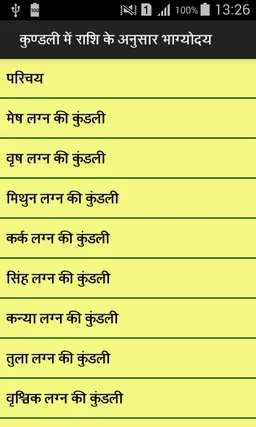 100 1 100% 13:26
कुण्डली में राशि के अनुसार भाग्योदय
परिचय
मेष लग्न की कुंडली
वृष लग्न की कुंडली
मिथुन लग्न की कुंडली
कर्क लग्न की कुंडली
सिंह लग्न की कुंडली
कन्या लग्न की कुंडली
तुला लग्न की कुंडली
वृश्चिक लग्न की कुंडली